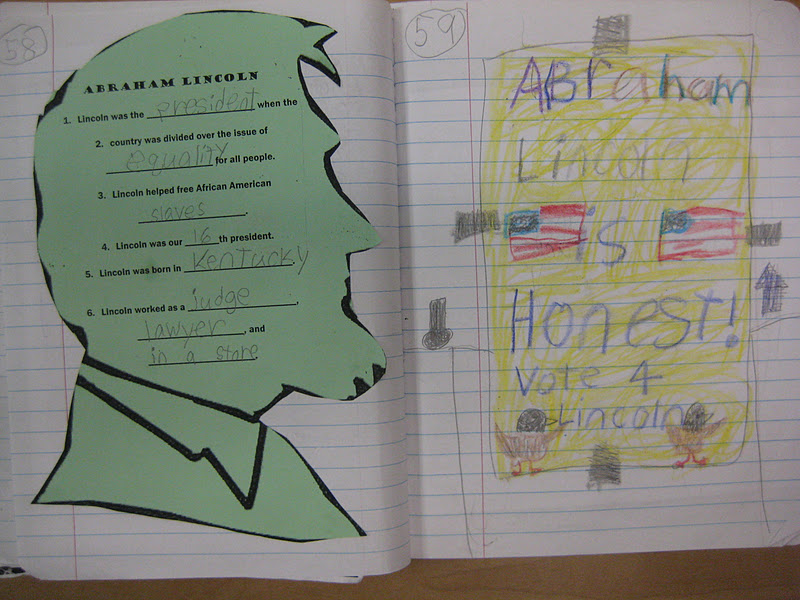 58
ABRAHAM LINCOLN
1. Lincoln was the president when the
2. country was divided over the issue of
equality for all people.
3. Lincoln helped free African American
slaves.
4. Lincoln was our 16th president.
5. Lincoln was born in Kentucky.
6. Lincoln worked as a judge,
lawyer, and
in a store
59
ABraham
Lincoln
is
Honest!
Vote 4
Lincoln